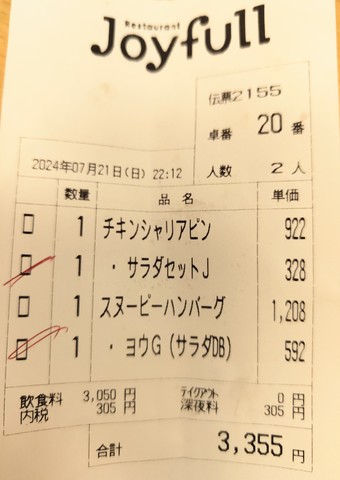 Restaurant
Joyfull
伝票2155
卓番 20 番
2024年07月21日(日) 22:12 人数 2 人
数量 品 名 単価
1 チキンシャリアピン 922
1 ・サラダセットJ 328
1 スヌーピーハンバーグ 1,208
1 ・ヨウG(サラダDB) 592
飲食料 3,050 円 テイクアウト 0 円
内税 305 円 深夜料 305 円
合計 3,355 円